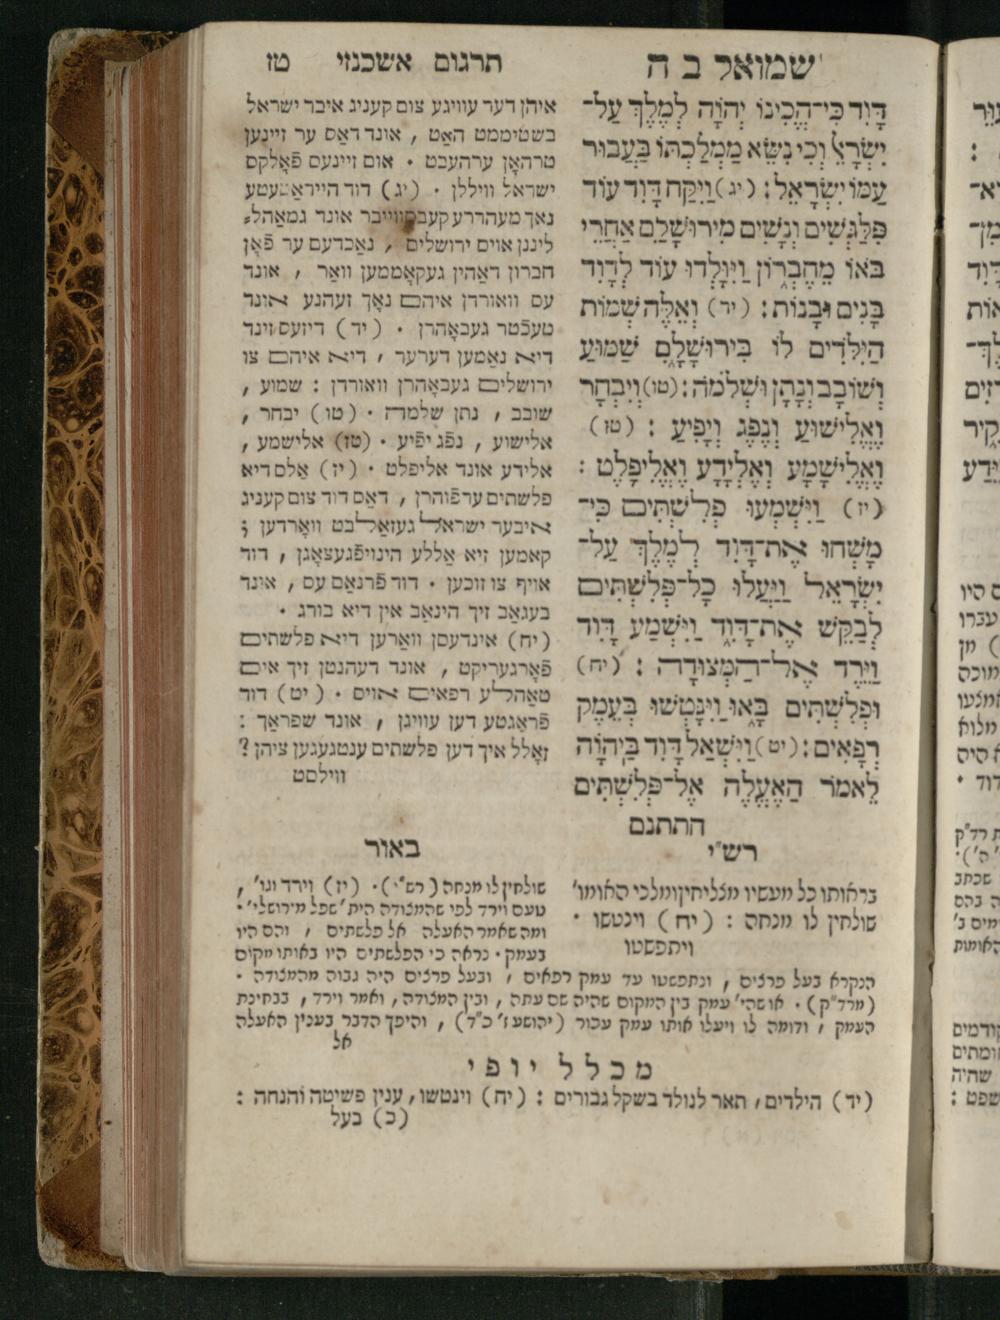 שמואל ב ה
תרגום אשכנזי
טז
דָּוִד כִּי־הֱכִינוֹ יְהוָֹה לְמֶלֶךְ עַל־
יִשְׂרָאֵל וְכִי נִשֵּׂא מַמְלַכְתּוֹ בַּעֲבוּר
עַמּוֹ יִשְׂרָאֵל : (יג) וַיִּקַּח דָּוִד עוֹד
פִּלַגְשִׁים וְנָשִׁים מִירוּשָׁלִַם אַחֲרֵי
בֹּאוֹ מֵחֶבְרוֹן וַיִּוָּלְדוּ עוֹד לְדָוִד
בָּנִים וּבָנוֹת : (יד) וְאֵלֶּה שְׁמוֹת
הַיִּלֹּדִים לוֹ בִּירוּשָׁלִָם שַׁמּוּעַ
וְשׁוֹבָב וְנָתָן וּשְׁלֹמֹה : (טו) וְיִבְחָר
וֶאֱלִישׁוּעַ וְנֶפֶג וְיָפִיעַ : (טז)
וֶאֱלִישָׁמָע וְאֶלְיָדָע וֶאֱלִיפָלֶט :
(יז) וַיִּשְׁמְעוּ פְלִשְׁתִּים כִּי־
מָשְׁחוּ אֶת־דָּוִד לְמֶלֶךְ עַל־
יִשְׂרָאֵל וַיַּעֲלוּ כָל־פְּלִשְׁתִּים
לְבַקֵּשׁ אֶת־דָּוִד וַיִּשְׁמַע דָּוִד
וַיֵּרֶד אֶל־הַמְּצוּדָה : (יח)
וּפְלִשְׁתִּים בָּאוּ וַיִּנָּטְשׁוּ בְּעֵמֶק
רְפָאִים : (יט) וַיִּשְׁאַל דָּוִד בַּיהוָֹה
לֵאמֹר הַאֶעֱלֶה אֶל־פְּלִשְׁתִּים
התתנם
איהן דער עוויגע צום קעניג איבר ישראל
בשטיממט האַט , אונד דאַס ער זיינען
טרהאָן ערהעבט . אום זיינעם פאָלקס
ישראל וויללן . (יג) דוד הייראַטעטע
נאָך מעהררע קעבסווייבר אונד גמאַהל=
ליננן אוים ירושלים , נאַכדעם ער פאָן
חברון דאַהין געקאָממען וואַר , אונד
עס וואורדן איהם נאָך זעהנע אונד
טעכטר געבאָהרן . (יד) דיזעס זינד
דיא נאַמען דערער , דיא איהם צו
ירושלים געבאָהרן וואורדן : שמוע ,
שובב , נתן שלמה . (טו) יבחר ,
אלישוע , נפג יפיע . (טז) אלישמע ,
אלידע אונד אליפלט . (יז) אַלס דיא
פלשתים ערפוהרן , דאַס דוד צום קעניג
איבער ישראל געזאַלבט וואָרדען ;
קאַמען זיא אַללע הינויפגעצאָגן , דוד
אויף צו זוכען . דוד פרנאַם עס , אונד
בעגאַב זיך הינאַב אין דיא בורג .
(יח) אינדעסן וואַרען דיא פלשתים
פאָרגעריקט , אונד דעהנטן זיך אים
טאַהלע רפאים אויס . (יט) דוד
פראַגטע דען עוויגן , אונד שפראַך :
זאָלל איך דען פלשתים ענטגעגען ציהן ?
ווילסט
רש"י
בראותו כל מעשיו מצליחין ומלכי האומו'
שולחין לו מנחה : (יח) וינטשו .
ויתפשטו
באור
שולחין לו מנחה (רש"י). (יז) וירד וגו' ,
טעם וירד לפי שהמצודה הית' שפל מירושלי' .
ומה שאמר האעלה אל פלשתים , והם היו
בעמק . נראה כי הפלשתים היו באותו מקום
הנקרא בעל פרצים , ונתפשטו עד עמק רפאים , ובעל פרצים היה גבוה מהמצודה .
(מרד"ק) . או שהי' עמק בין המקום שהיה שם עתה , ובין המצודה , ואמר וירד , בבחינת
העמק , ודומה לו ויעלו אותו עמק עכור (יהושע ז' כ"ד) , והיפך הדבר בענין האעלה
אל
מכלל יופי
(יד) הילדים , תאר לנולד בשקל גבורים : (יח) וינטשו , ענין פשיטה והנחה :
(כ) בעל